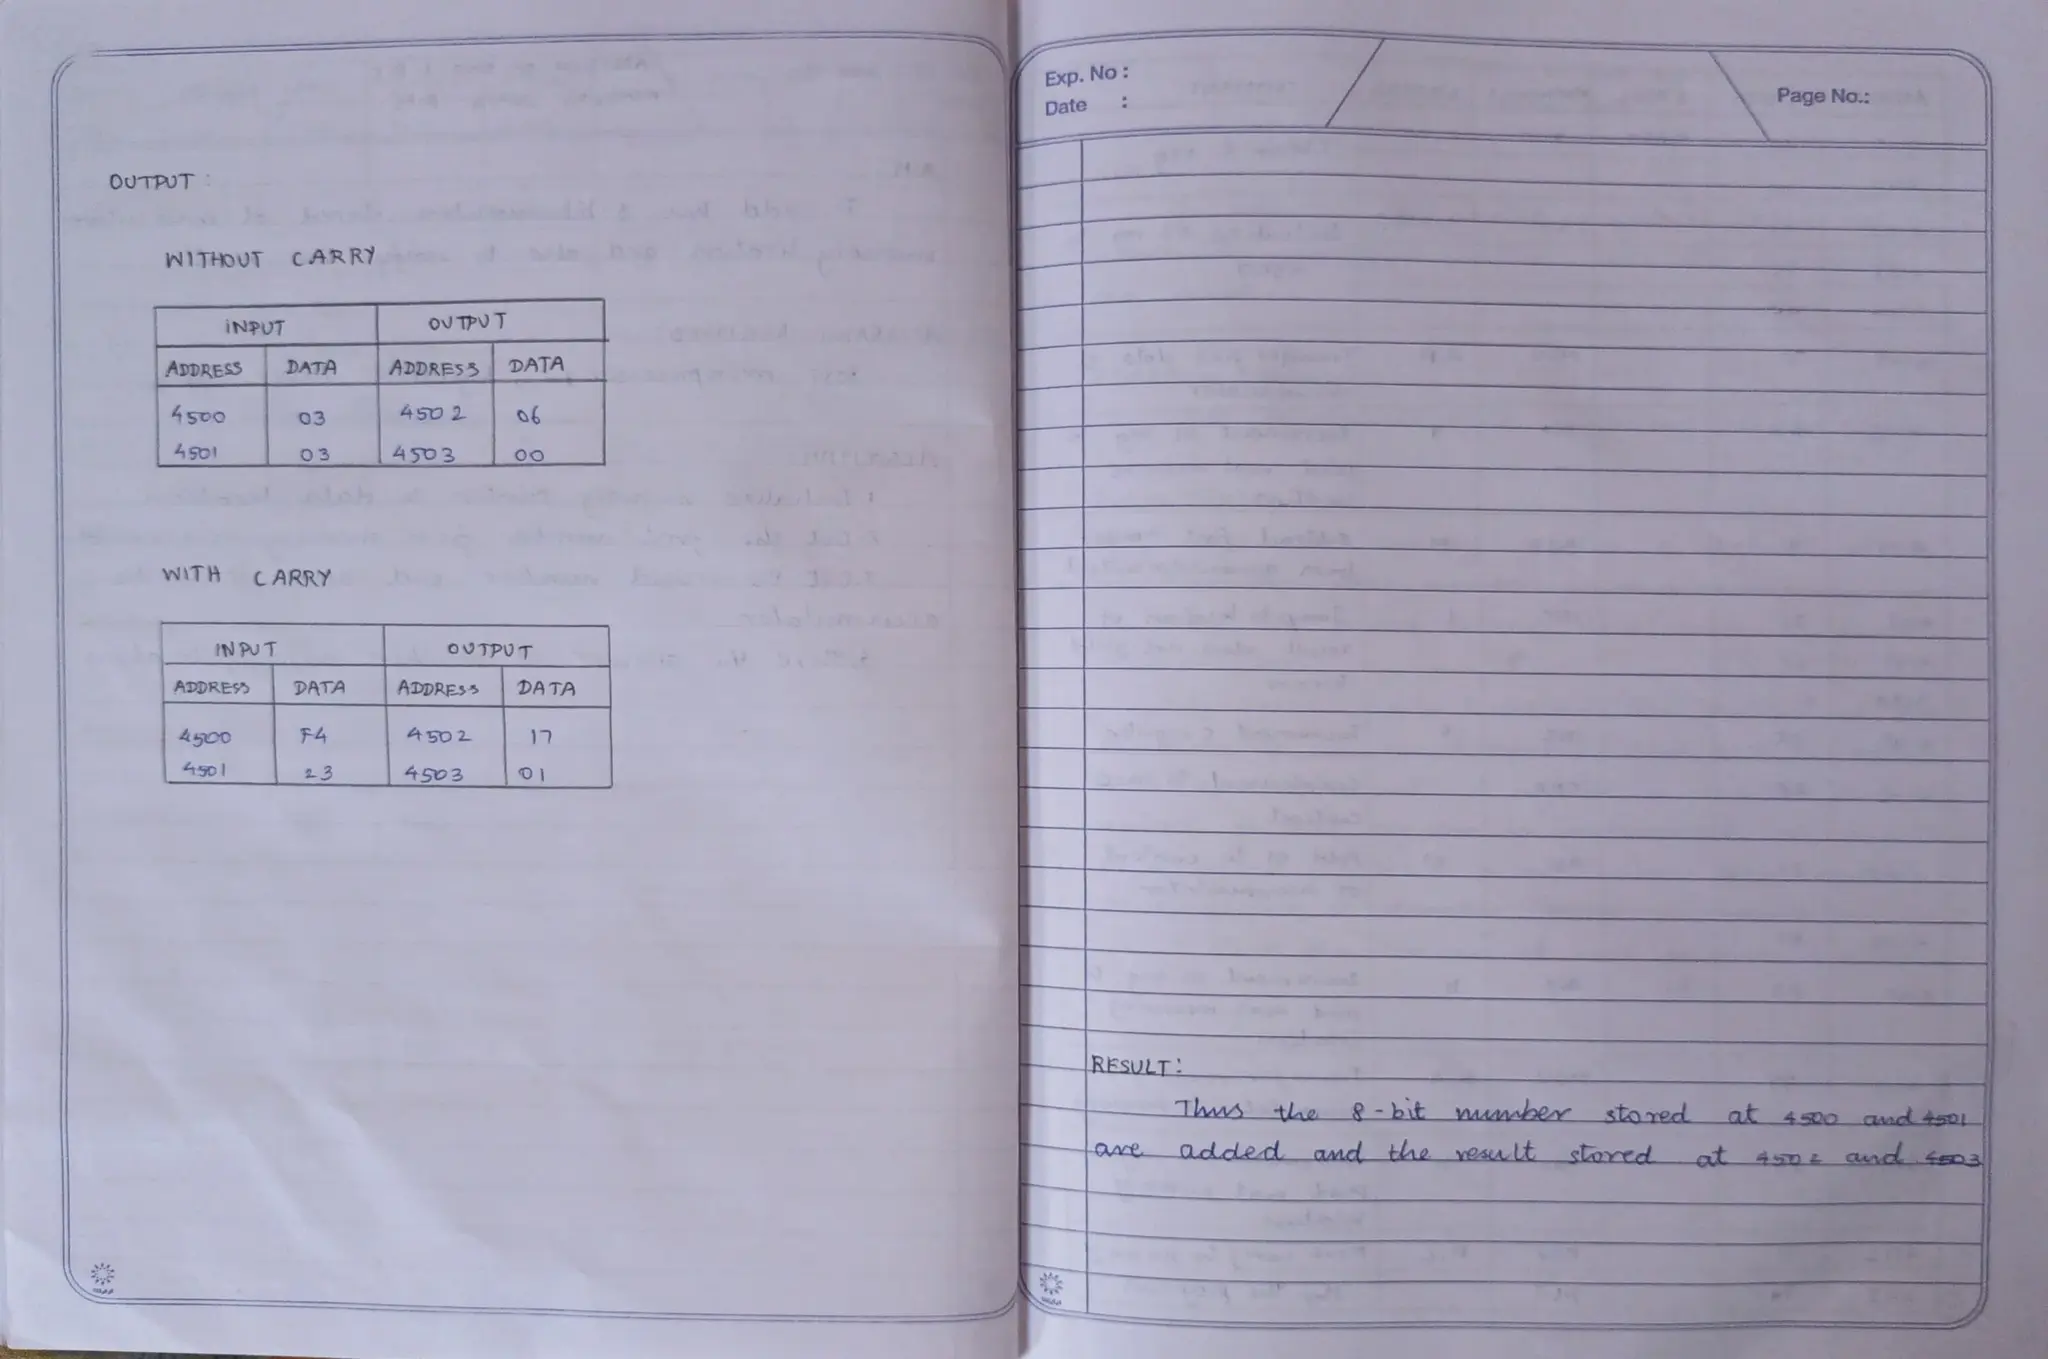 OUTPUT :
WITHOUT CARRY
INPUT OUTPUT
ADDRESS DATA ADDRESS DATA
4500 03 4502 06
4501 03 4503 00
WITH CARRY
INPUT OUTPUT
ADDRESS DATA ADDRESS DATA
4500 F4 4502 17
4501 23 4503 01
Exp. No :
Date :
Page No.:
RESULT:
Thus the 8-bit number stored at 4500 and 4501
are added and the result stored at 4502 and 4503